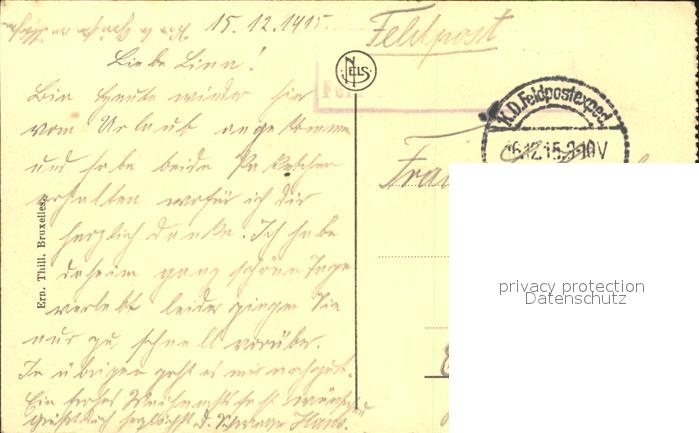 15.12.1915.
Feldpost
Liebe Lina!
NELS
Bin Heute wieder hier
vom Urlaub angekommen
und habe beide Paketchen
erhalten wofür ich dir
herzlich danke. Ich habe
daheim ganz schöne Tage
verlebt leider gingen Sie
nur zu schnell vorüber.
Im übrigen geht es mir noch gut.
Ein frohes Weihnachtsfest wünscht
herzlichst d. Schwager Hans.
Ern. Thill, Bruxelles.
K.D.Feldpostexped.
16.12.15.9-10V
privacy protection
Datenschutz